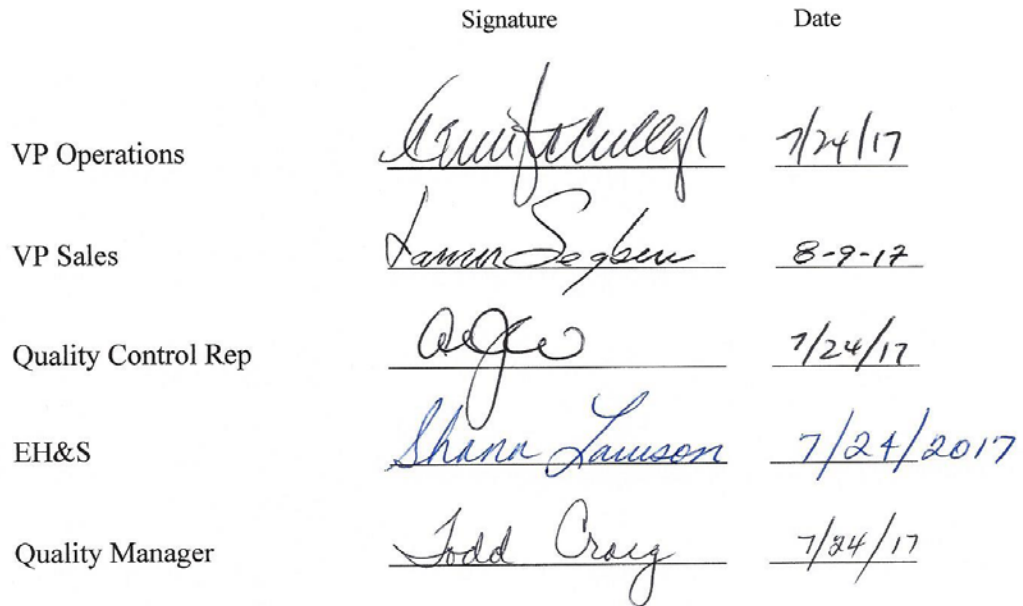 Signature Date
VP Operations 7/24/17
VP Sales 8-9-17
Quality Control Rep 7/24/17
EH&S Shana Lawson 7/24/2017
Quality Manager Todd Craig 7/24/17